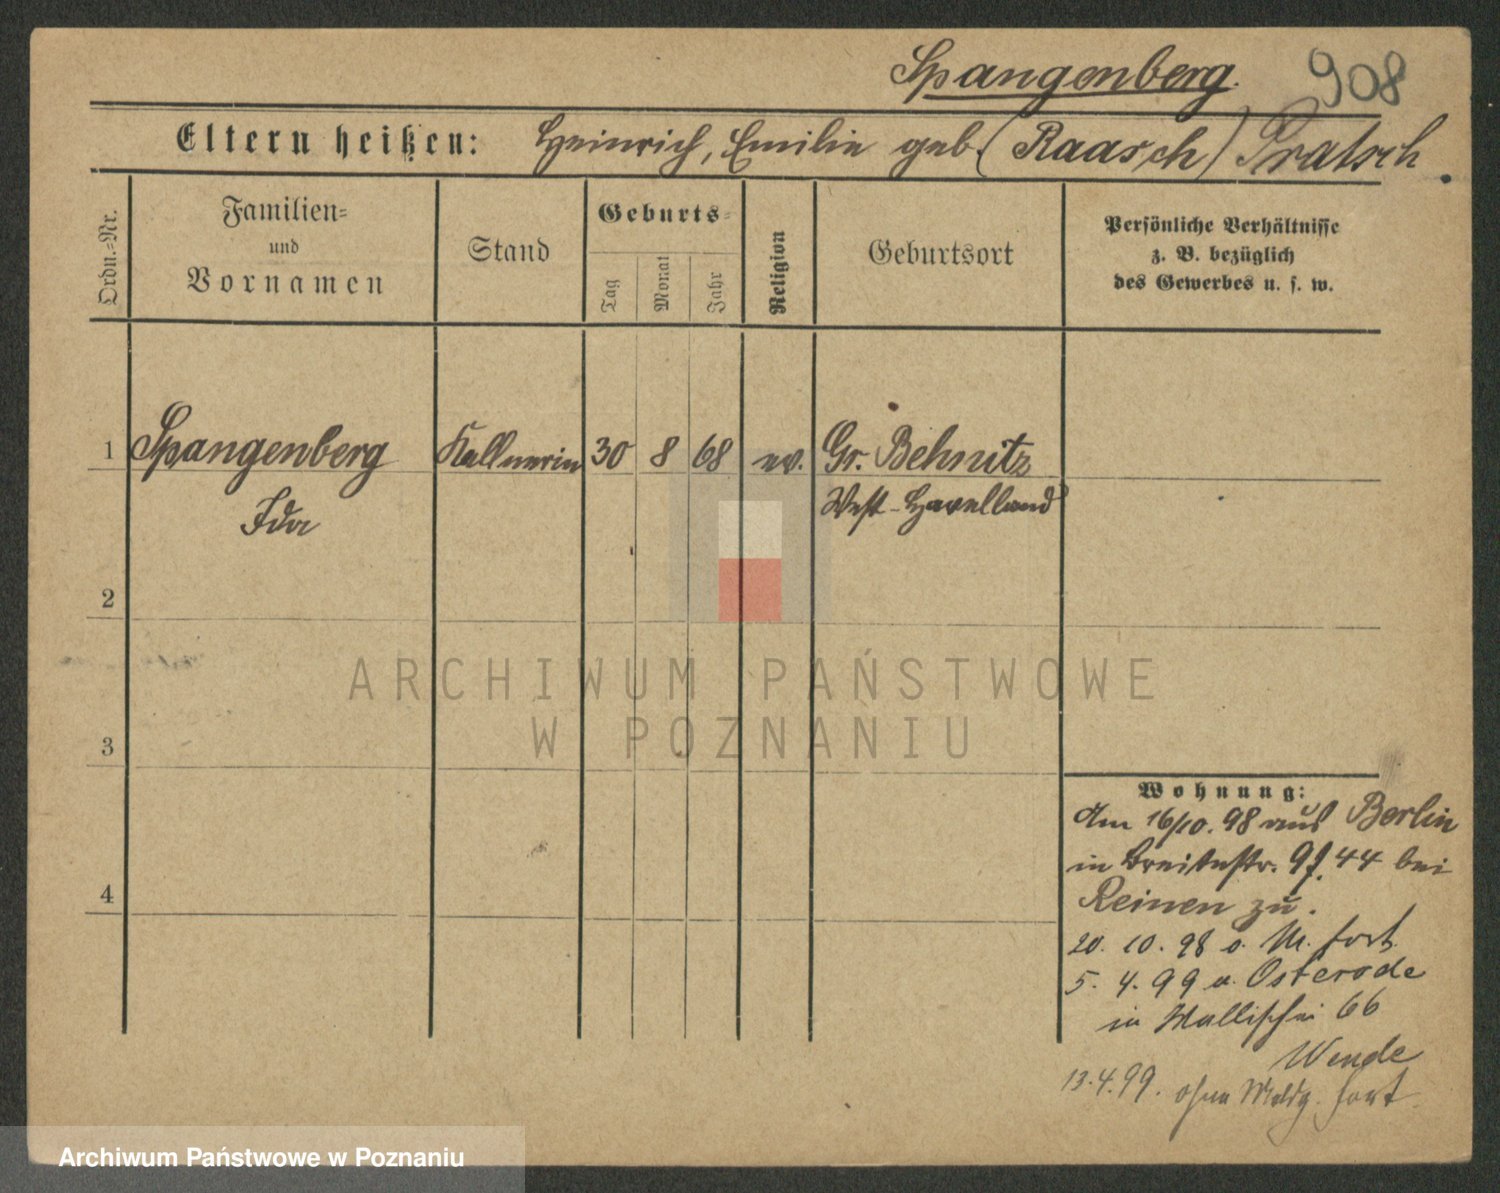 Spangenberg.
908
Eltern heißen: Heinrich, Emilie geb. (Raasch) Pratsch.
Ordn.-Nr.
Familien-
und
Vornamen
Stand
Geburts-
Tag
Monat
Jahr
Religion
Geburtsort
Persönliche Verhältnisse
z. B. bezüglich
des Gewerbes u. s. w.
1 Spangenberg Kellnerin 30 8 68 ev. Gr. Behnitz
Ida West-Havelland
2
ARCHIWUM PAŃSTWOWE
W POZNANIU
3
4
Wohnung:
Am 16/10. 98 aus Berlin
in Breitestr. 44 bei
Reinen zu.
20. 10. 98 o. M. fort.
5. 4. 99 a. Osterode
in Wallischei 66
Wende
13.4.99. ohne Meldg. fort.
Archiwum Państwowe w Poznaniu